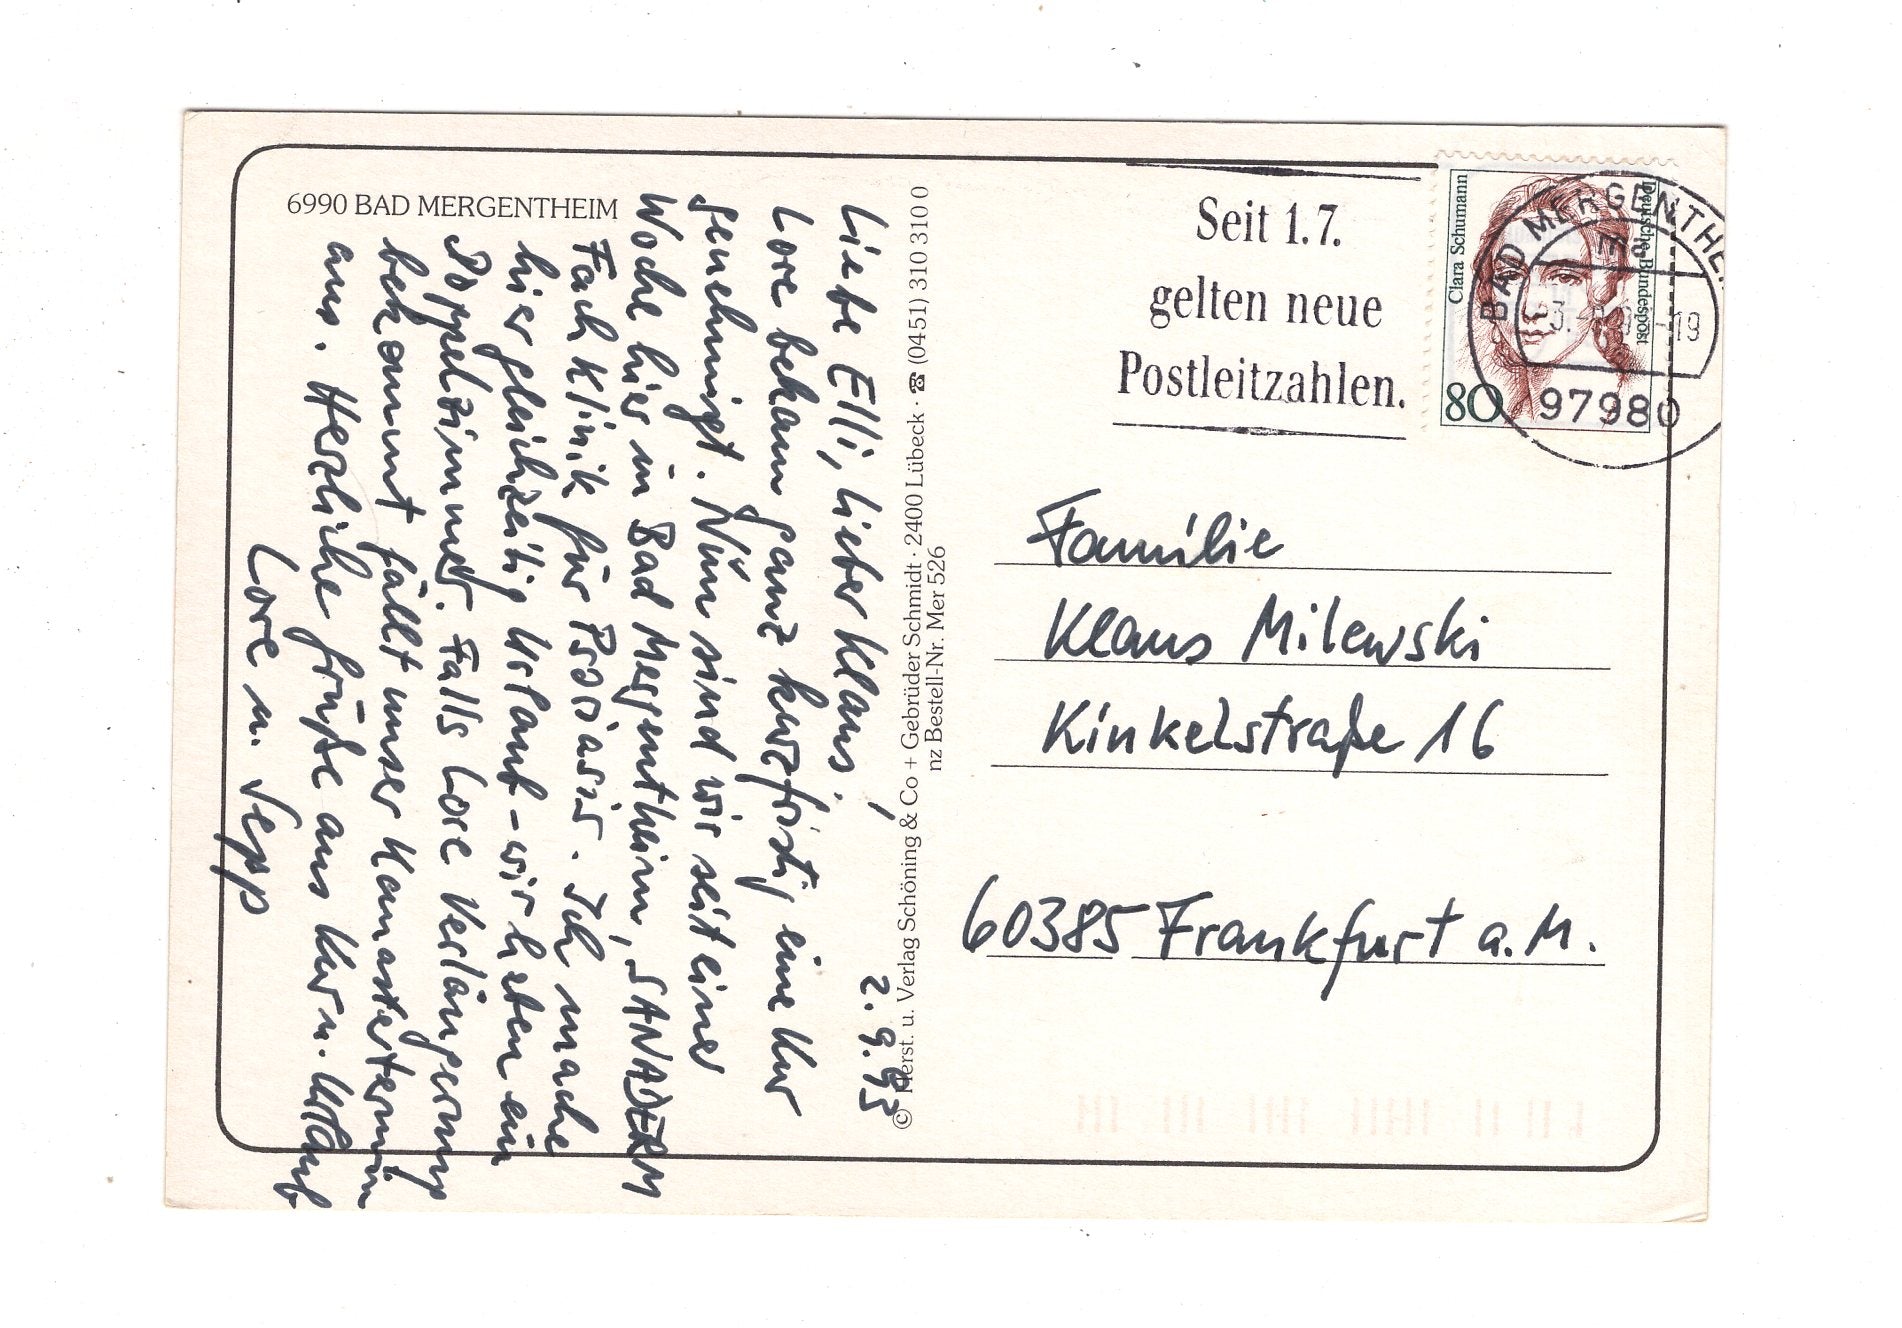 6990 BAD MERGENTHEIM
2.9.93
Liebe Elli, lieber Klaus,
Lore bekam ganz kurzfristig eine Kur
genehmigt. Nun sind wir seit einer
Woche hier in Bad Mergentheim, SANADERM
Fachklinik für Psoriasis. Ich mache
hier gleichzeitig Urlaub - wir haben ein
Doppelzimmer. Falls Lore Verlängerung
bekommt fällt unser Kanastertermin
aus. Herzliche Grüße aus Kur u. Urlaub
Lore u. Sepp
© Herst. u. Verlag Schöning & Co + Gebrüder Schmidt · 2400 Lübeck · ☎ (0451) 310 310 0
nz Bestell-Nr. Mer 526
Seit 1.7.
gelten neue
Postleitzahlen.
Clara Schumann
Deutsche Bundespost
80
BAD MERGENTHEI
97980
Familie
Klaus Milewski
Kinkelstraße 16
60385 Frankfurt a.M.